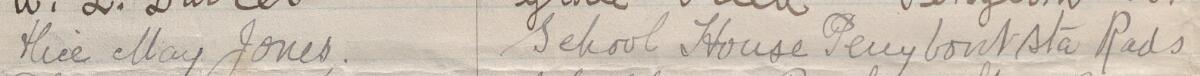 Alice May Jones. School House Penybont Sta Rads